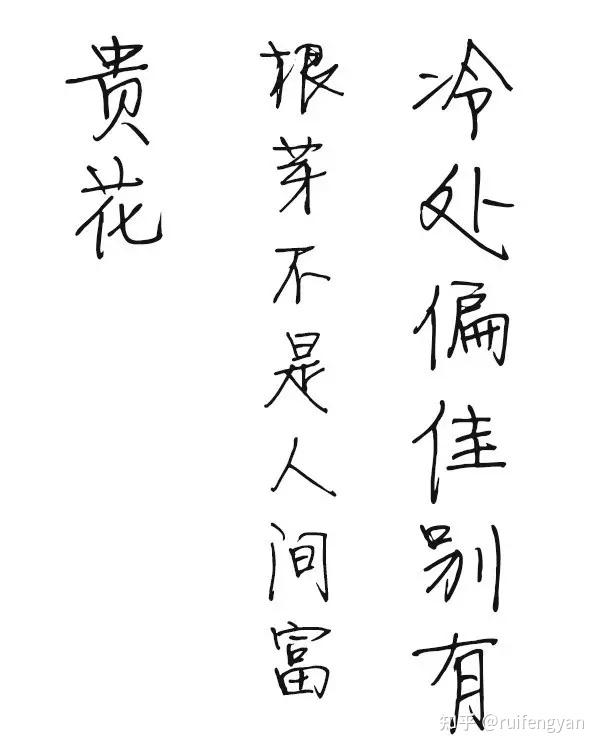 冷处偏佳别有
根芽不是人间富
贵花
知乎 @ruifengyan